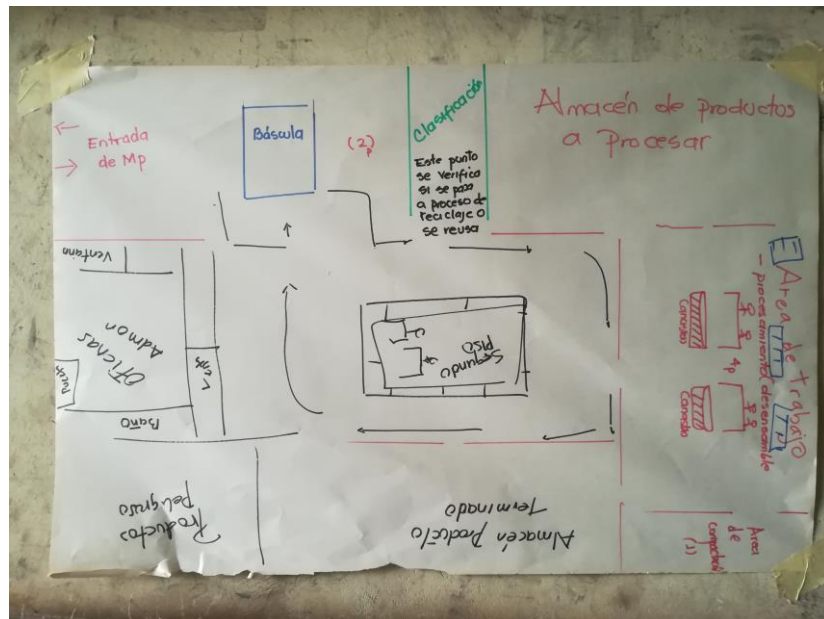 Entrada
de Mp
Báscula
(2)p
Clasificación
Este punto
se verifica
si se pasa
a proceso de
reciclaje o
se reusa
Almacén de productos
a Procesar
Ventana
Oficinas
Admon
Baño
Segundo
Piso
Area de trabajo
- procesamiento/desensamble
Canastos
4p
Canasto
Productos
Peligroso
Almacén Producto
Terminado
Area
de
(1)